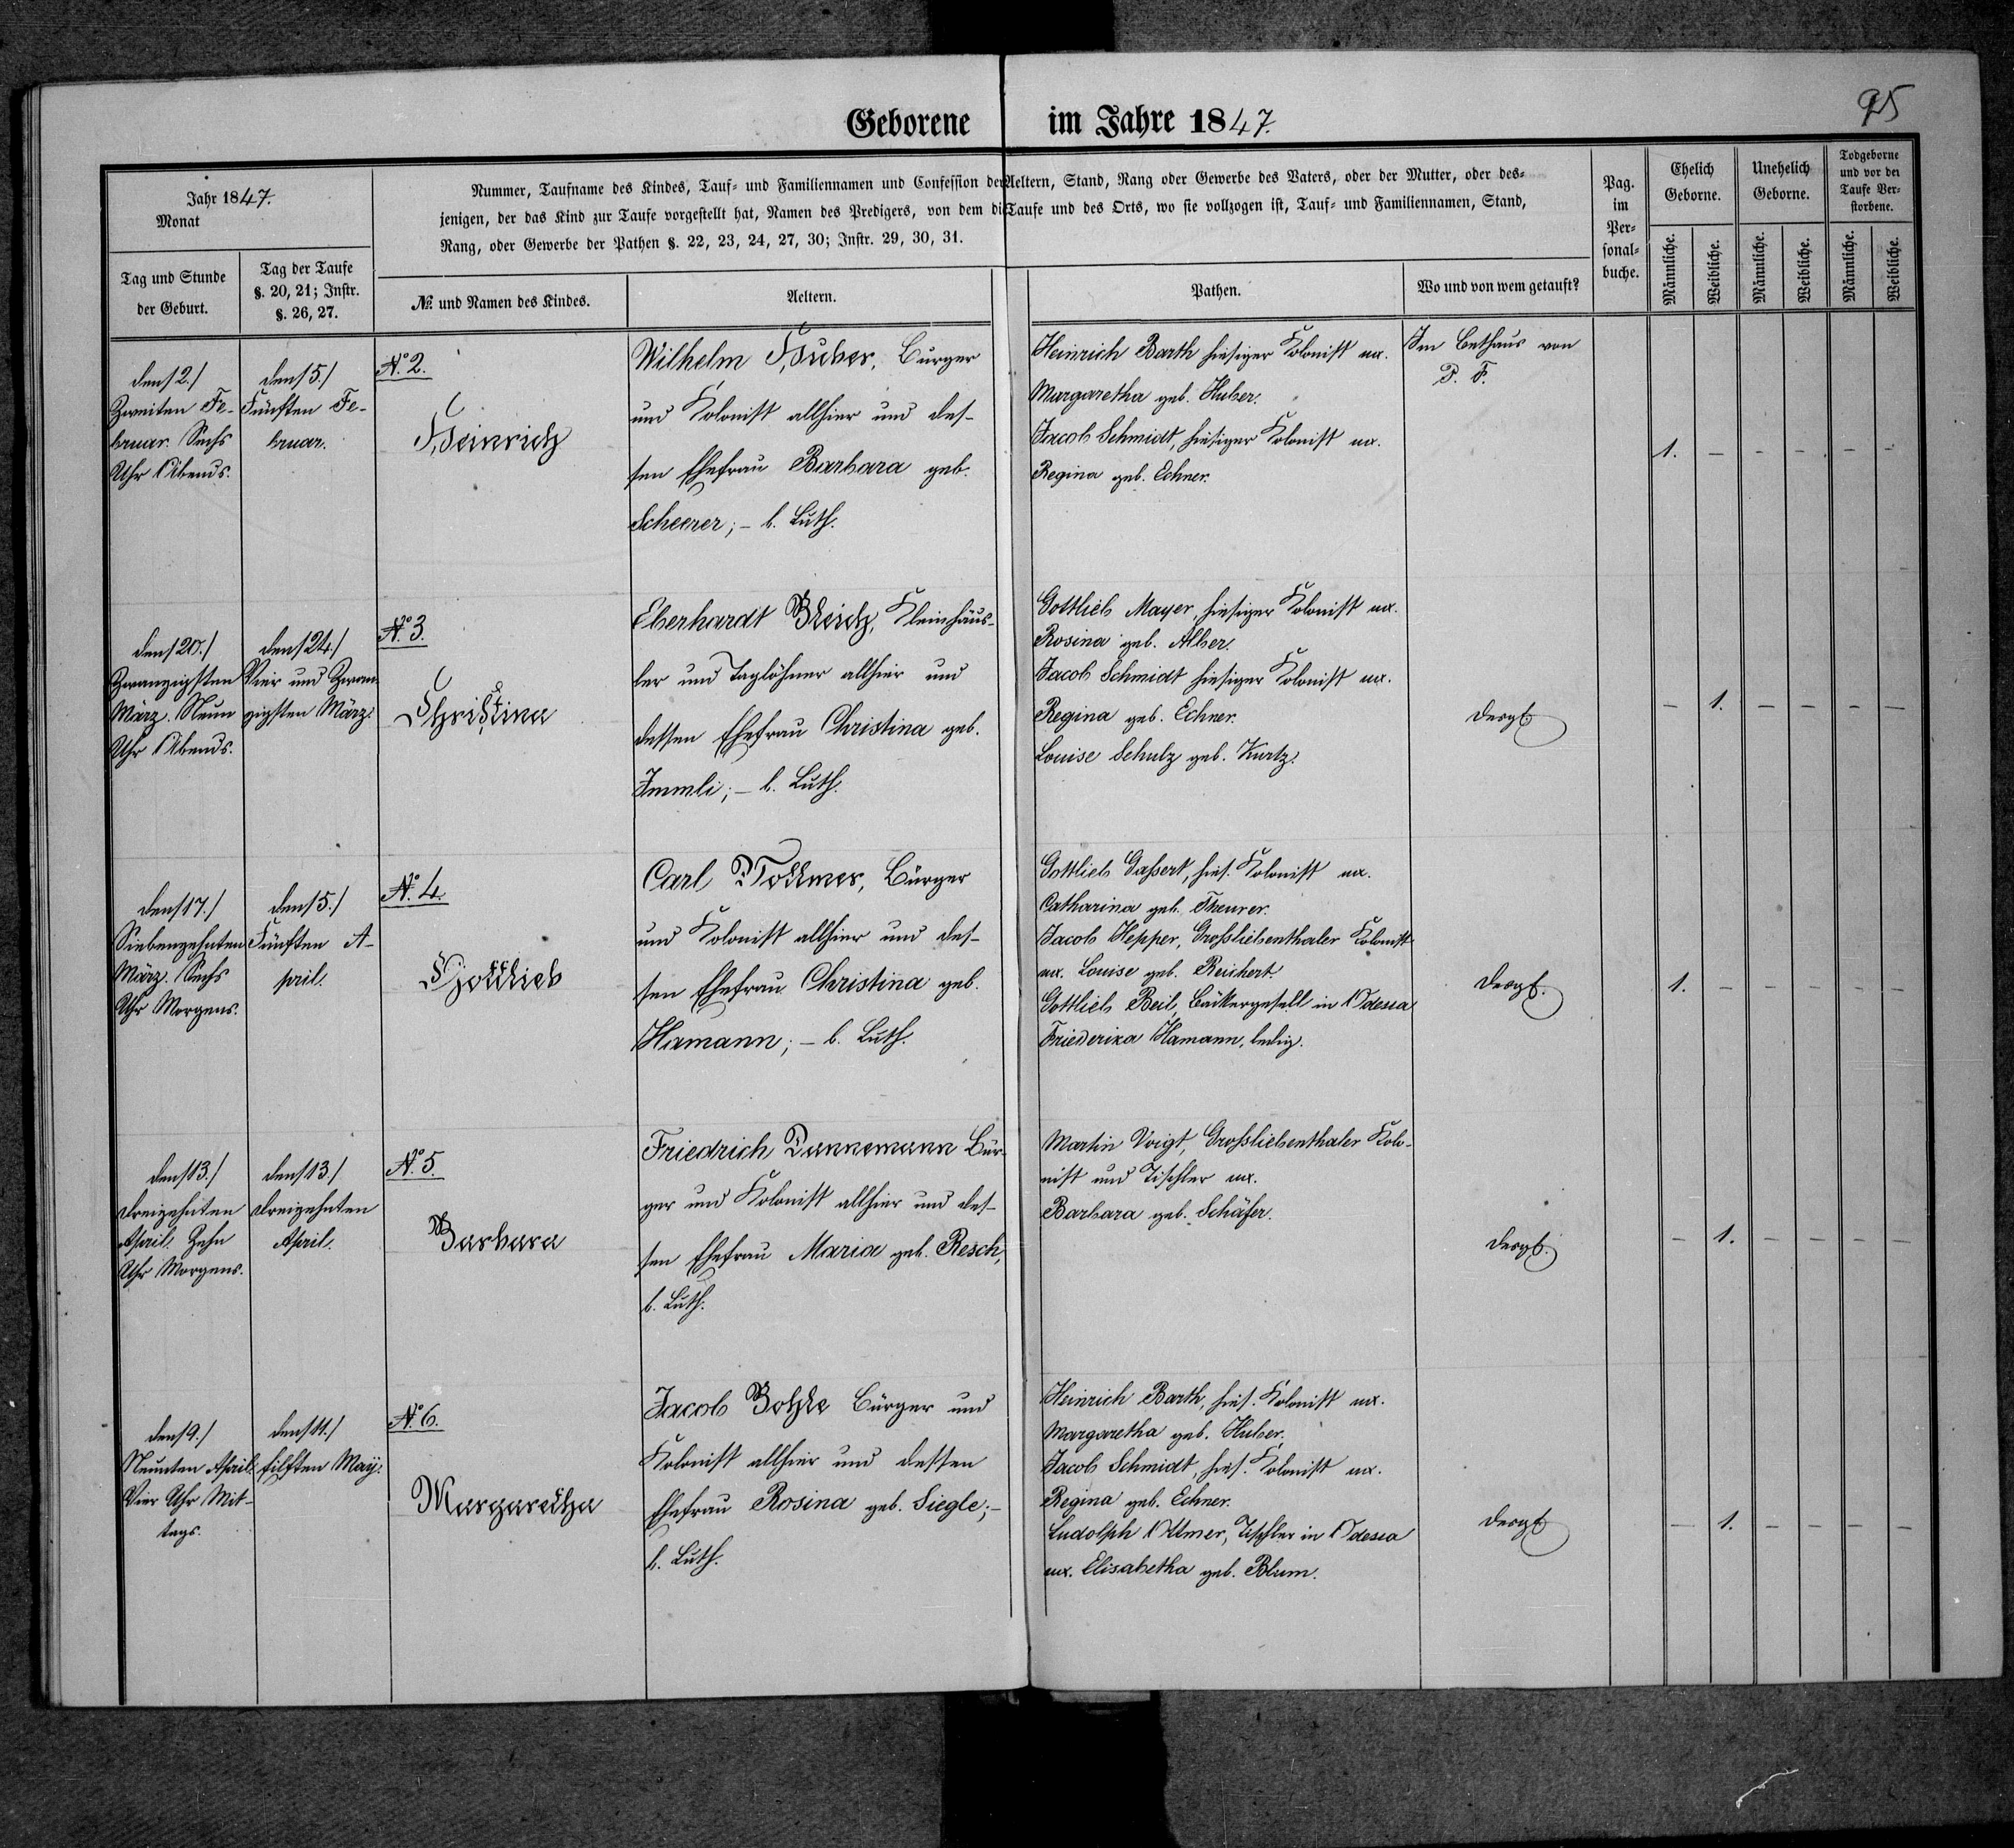 95
Geborene im Jahre 1847.
Jahr 1847.
Monat
Nummer, Taufname des Kindes, Tauf- und Familiennamen und Confession der Aeltern, Stand, Rang oder Gewerbe des Vaters, oder der Mutter, oder des-
jenigen, der das Kind zur Taufe vorgestellt hat, Namen des Predigers, von dem die Taufe und des Orts, wo sie vollzogen ist, Tauf- und Familiennamen, Stand,
Rang, oder Gewerbe der Pathen §. 22, 23, 24, 27, 30; Instr. 29, 30, 31.
Pag.
im
Per-
sonal-
buche.
Ehelich
Geborne.
Unehelich
Geborne.
Todgeborne
und vor der
Taufe Ver-
storbene.
Tag und Stunde
der Geburt.
Tag der Taufe
§. 20, 21; Instr.
§. 26, 27.
№ und Namen des Kindes.
Aeltern.
Pathen.
Wo und von wem getauft?
Männliche.
Weibliche.
Männliche.
Weibliche.
Männliche.
Weibliche.
den /2./
Zweiten Fe-
bruar. Sechs
Uhr Abends.
den /5./
Fünften Fe-
bruar.
N.° 2.
Heinrich
Wilhelm Huber, Bürger
und Kolonist allhier und des-
sen Ehefrau Barbara geb.
Scheerer; – b. Luth.
Heinrich Barth hiesiger Kolonist ux.
Margaretha geb. Huber.
Jacob Schmidt, hiesiger Kolonist ux.
Regina geb. Echner.
Im Bethaus von
P. F.
1. – – – – –
den /20./
Zwanzigsten
März. Neun
Uhr Abends.
den /24./
Vier und Zwan-
zigsten März.
N.° 3.
Christina
Eberhardt Bleich, Kleinhäus-
ler und Taglöhner allhier und
dessen Ehefrau Christina geb.
Immli; – b. Luth.
Gottlieb Mayer, hiesiger Kolonist ux.
Rosina geb. Alber.
Jacob Schmidt hiesiger Kolonist ux.
Regina geb. Echner.
Louise Schulz geb. Kurtz.
desgl.
– 1. – – – –
den /17./
Siebenzehnten
März. Sechs
Uhr Morgens.
den /5./
Fünften A-
pril.
N.° 4.
Gottlieb
Carl Vollmer, Bürger
und Kolonist allhier und des-
sen Ehefrau Christina geb.
Hamann; – b. Luth.
Gottlieb Gassert, hies. Kolonist ux.
Catharina geb. Theurer.
Jacob Hepper, Grossliebenthaler Kolonist
ux. Louise geb. Reichert.
Gottlieb Beil, Bäkergesell in Odessa
Friederika Hamann, ledig.
desgl.
1. – – – – –
den /13./
Dreizehnten
April. Zehn
Uhr Morgens.
den /13./
Dreizehnten
April.
N.° 5.
Barbara
Friedrich Dannemann Bür-
ger und Kolonist allhier und des-
sen Ehefrau Maria geb. Resch,
b. Luth.
Martin Voigt, Grossliebenthaler Kolo-
nist und Tischler ux.
Barbara geb. Schäfer.
desgl.
– 1. – – – –
den /9./
Neunten April.
Vier Uhr Mit-
tags.
den /11./
Eilften May.
N.° 6.
Margaretha
Jacob Bohle Bürger und
Kolonist allhier und dessen
Ehefrau Rosina geb. Siegle; –
b. Luth.
Heinrich Barth, hies. Kolonist ux.
Margaretha geb. Huber.
Jacob Schmidt, hies. Kolonist ux.
Regina geb. Echner.
Ludolph Ollmer, Tischler in Odessa
ux. Elisabetha geb. Blum.
desgl.
– 1. – – – –